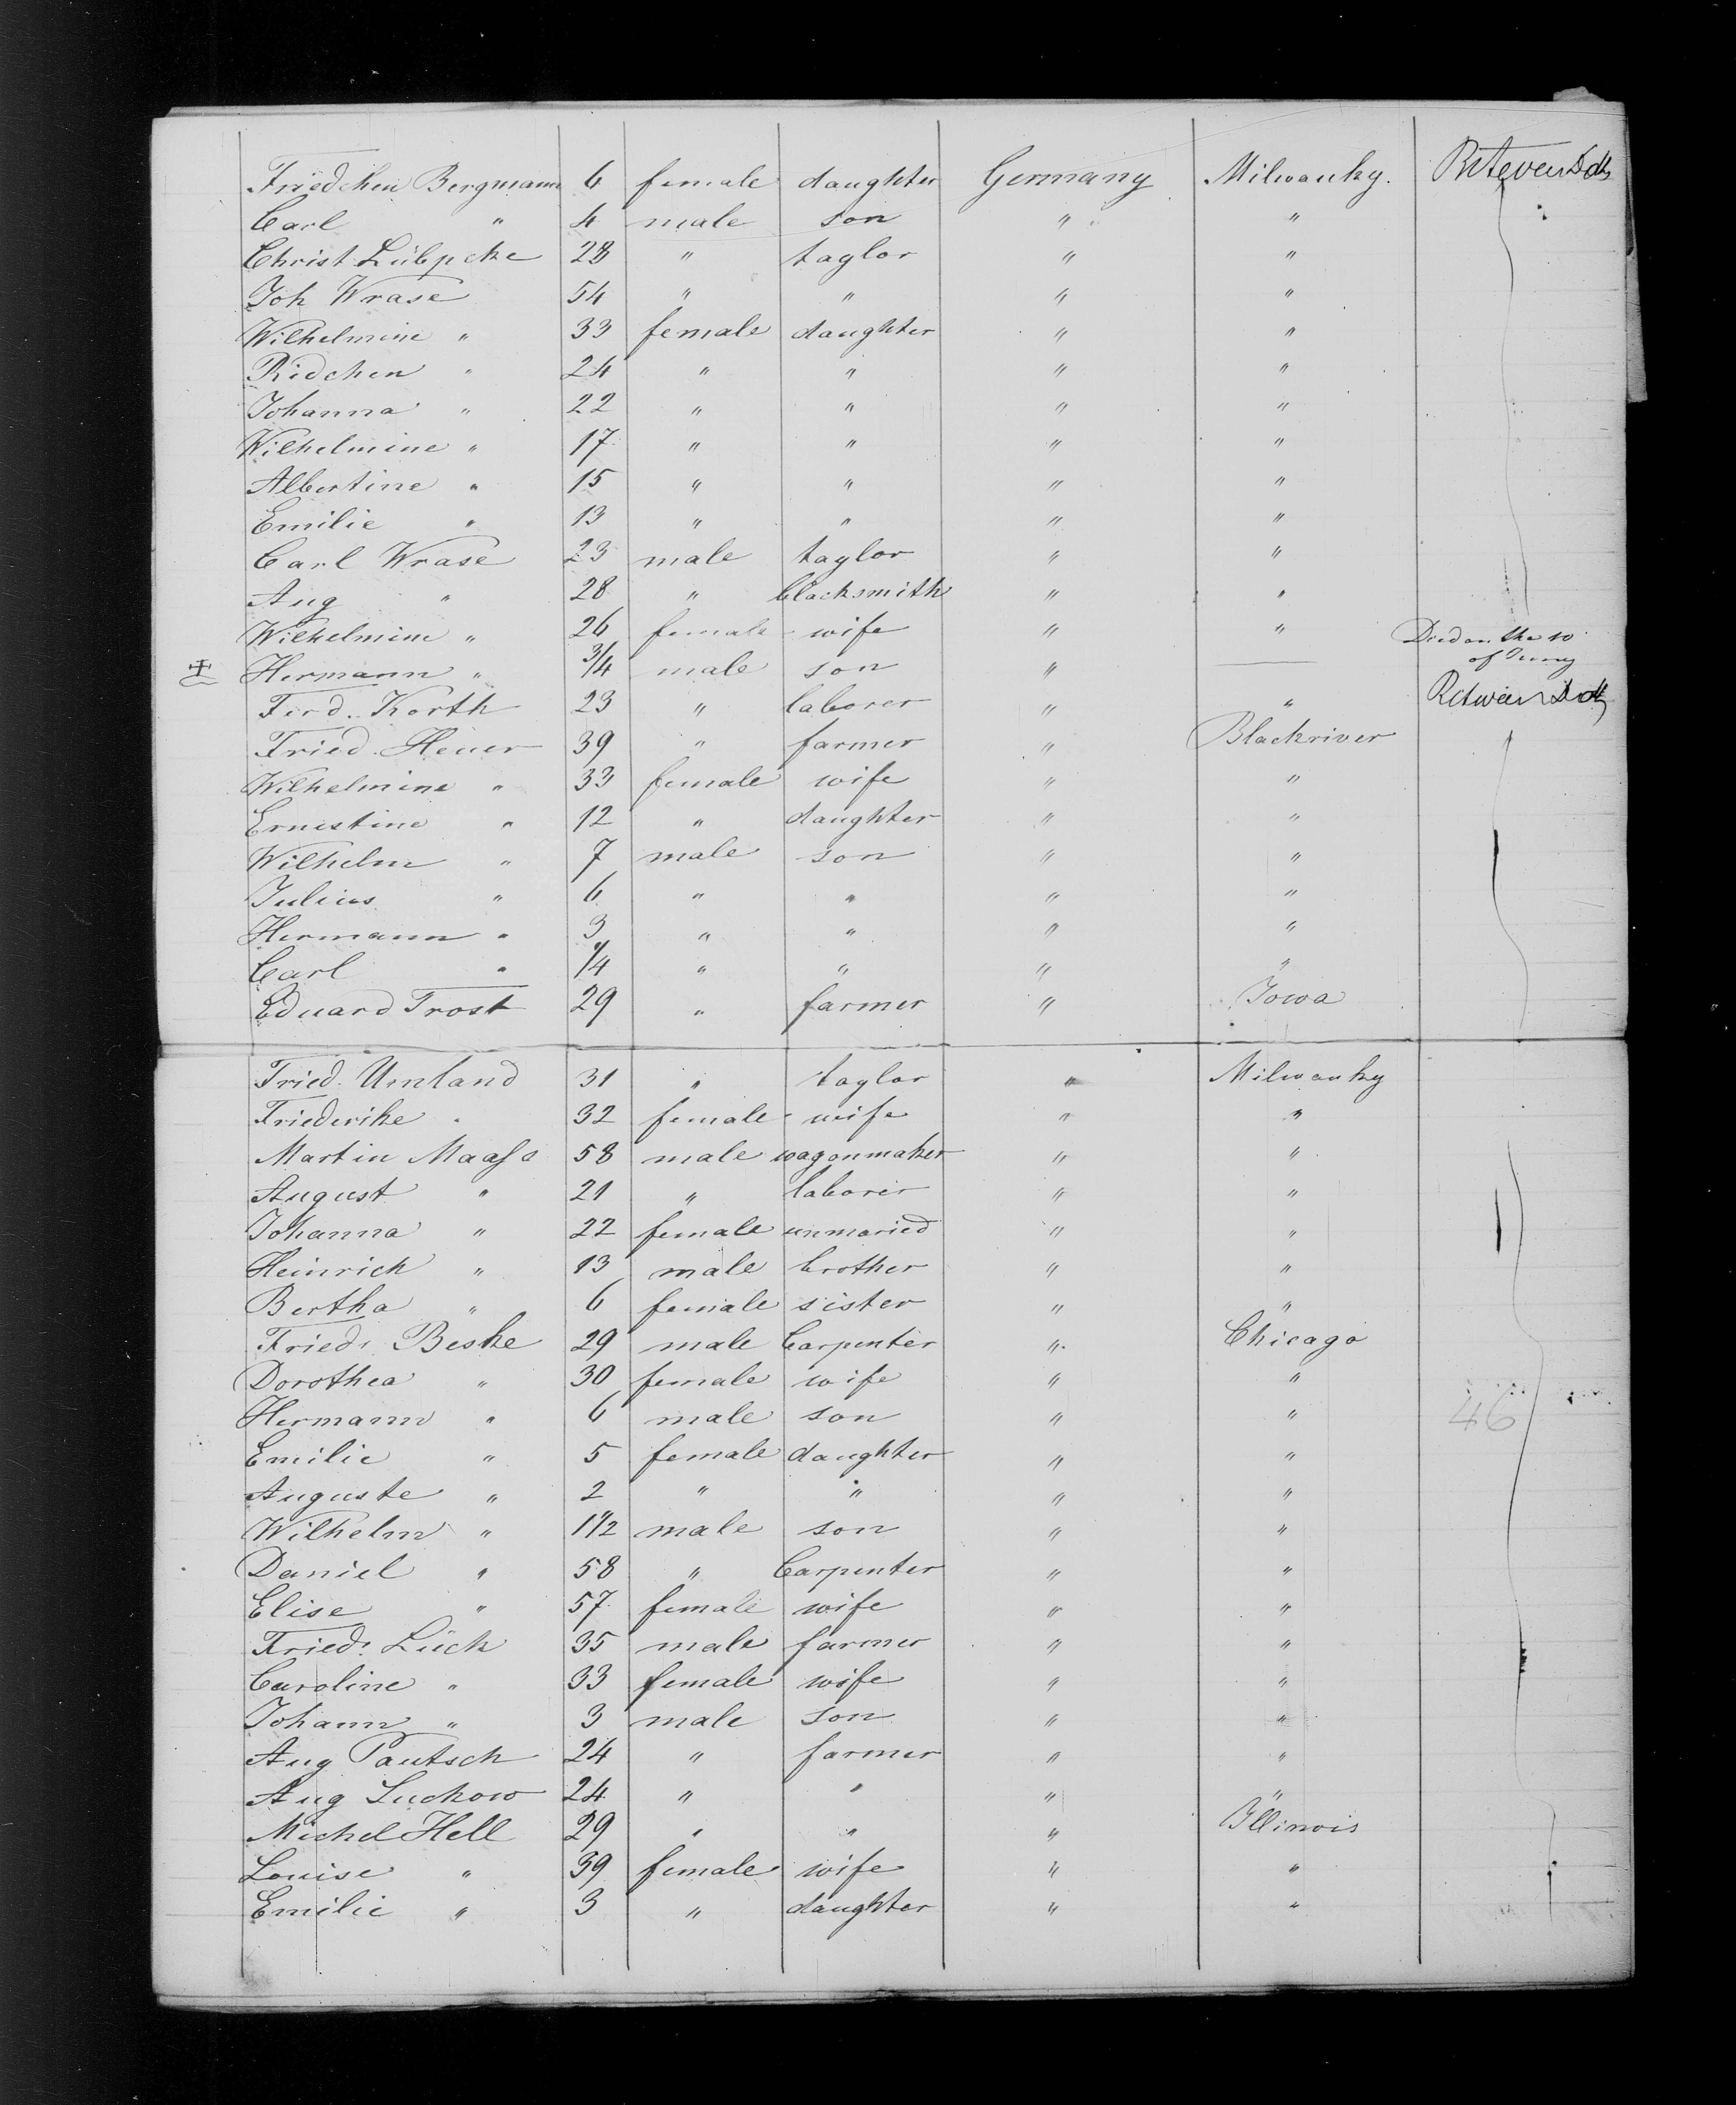 Friedchen Bergmann 6 female daughter Germany Milwauky.
Carl " 4 male son " "
Christ Lübpcke 28 " taylor " "
Joh Wrase 54 " " " "
Wilhelmine " 33 female daughter " "
Ridchen " 24 " " " "
Johanna " 22 " " " "
Wilhelmine " 17 " " " "
Albertine " 15 " " " "
Emilie " 13 " " " "
Carl Wrase 23 male taylor " "
Aug " 28 " blacksmith " "
Wilhelmine " 26 female wife " " Died on the 10
Hermann " 3/4 male son " — of
Ferd. Korth 23 " laborer " "
Fried. Heuer 39 " farmer " Blackriver
Wilhelmine " 33 female wife " "
Ernestine " 12 " daughter " "
Wilhelm " 7 male son " "
Julius " 6 " " " "
Hermann " 3 " " " "
Carl " 1/4 " " " "
Eduard Trost 29 " farmer " Iowa
Fried. Umland 31 " taylor " Milwauky
Friederike " 32 female wife " "
Martin Maaſs 58 male wagonmaker " "
August " 21 " laborer " "
Johanna " 22 female unmaried " "
Heinrich " 13 male brother " "
Bertha " 6 female sister " "
Fried. Beske 29 male Carpenter " Chicago
Dorothea " 30 female wife " "
Hermann " 6 male son " " 46
Emilie " 5 female daughter " "
Auguste " 2 " " " "
Wilhelm " 1 1/2 male son " "
Daniel " 58 " Carpenter " "
Elise " 57 female wife " "
Fried. Lück 35 male farmer " "
Caroline " 33 female wife " "
Johann " 3 male son " "
Aug Pautsch 24 " farmer " "
Aug Luckow 24 " " " "
Michel Hell 29 " " " Illinois
Louise " 39 female wife " "
Emilie " 3 " daughter " "